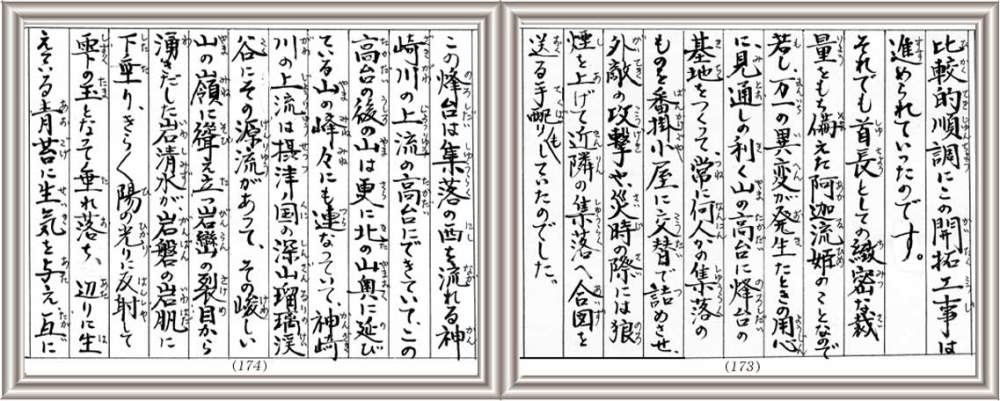 比較的順調にこの開拓工事は
進められていったのです。
それでも首長としての緻密な裁
量をもち備えた阿迦流姫のことなので
若し、万一の異変が発生したときの用心
に、見通しの利く山の高台に烽台の
基地をつくって、常に何人かの集落の
ものを番掛小屋に交替で詰めさせ、
外敵の攻撃や、災時の際には狼
煙を上げて近隣の集落へ合図を
送る手配りもしていたのでした。
(173)
この烽台は集落の西を流れる神
崎川の上流の高台にできていて、この
高台の後の山は更に北の山奥に延び
ている山の峰々にも連なっていて、神崎
川の上流は摂津の国の深山瑠璃渓
谷にその源流があって、その峻しい
山の嶺に聳え立つ岩巒の裂目から
湧きだした岩清水が岩盤の岩肌に
下垂り、きらきら陽の光りに反射して
雫の玉となって垂れ落ち、辺りに生
えている青苔に生気を与え、互に
(174)